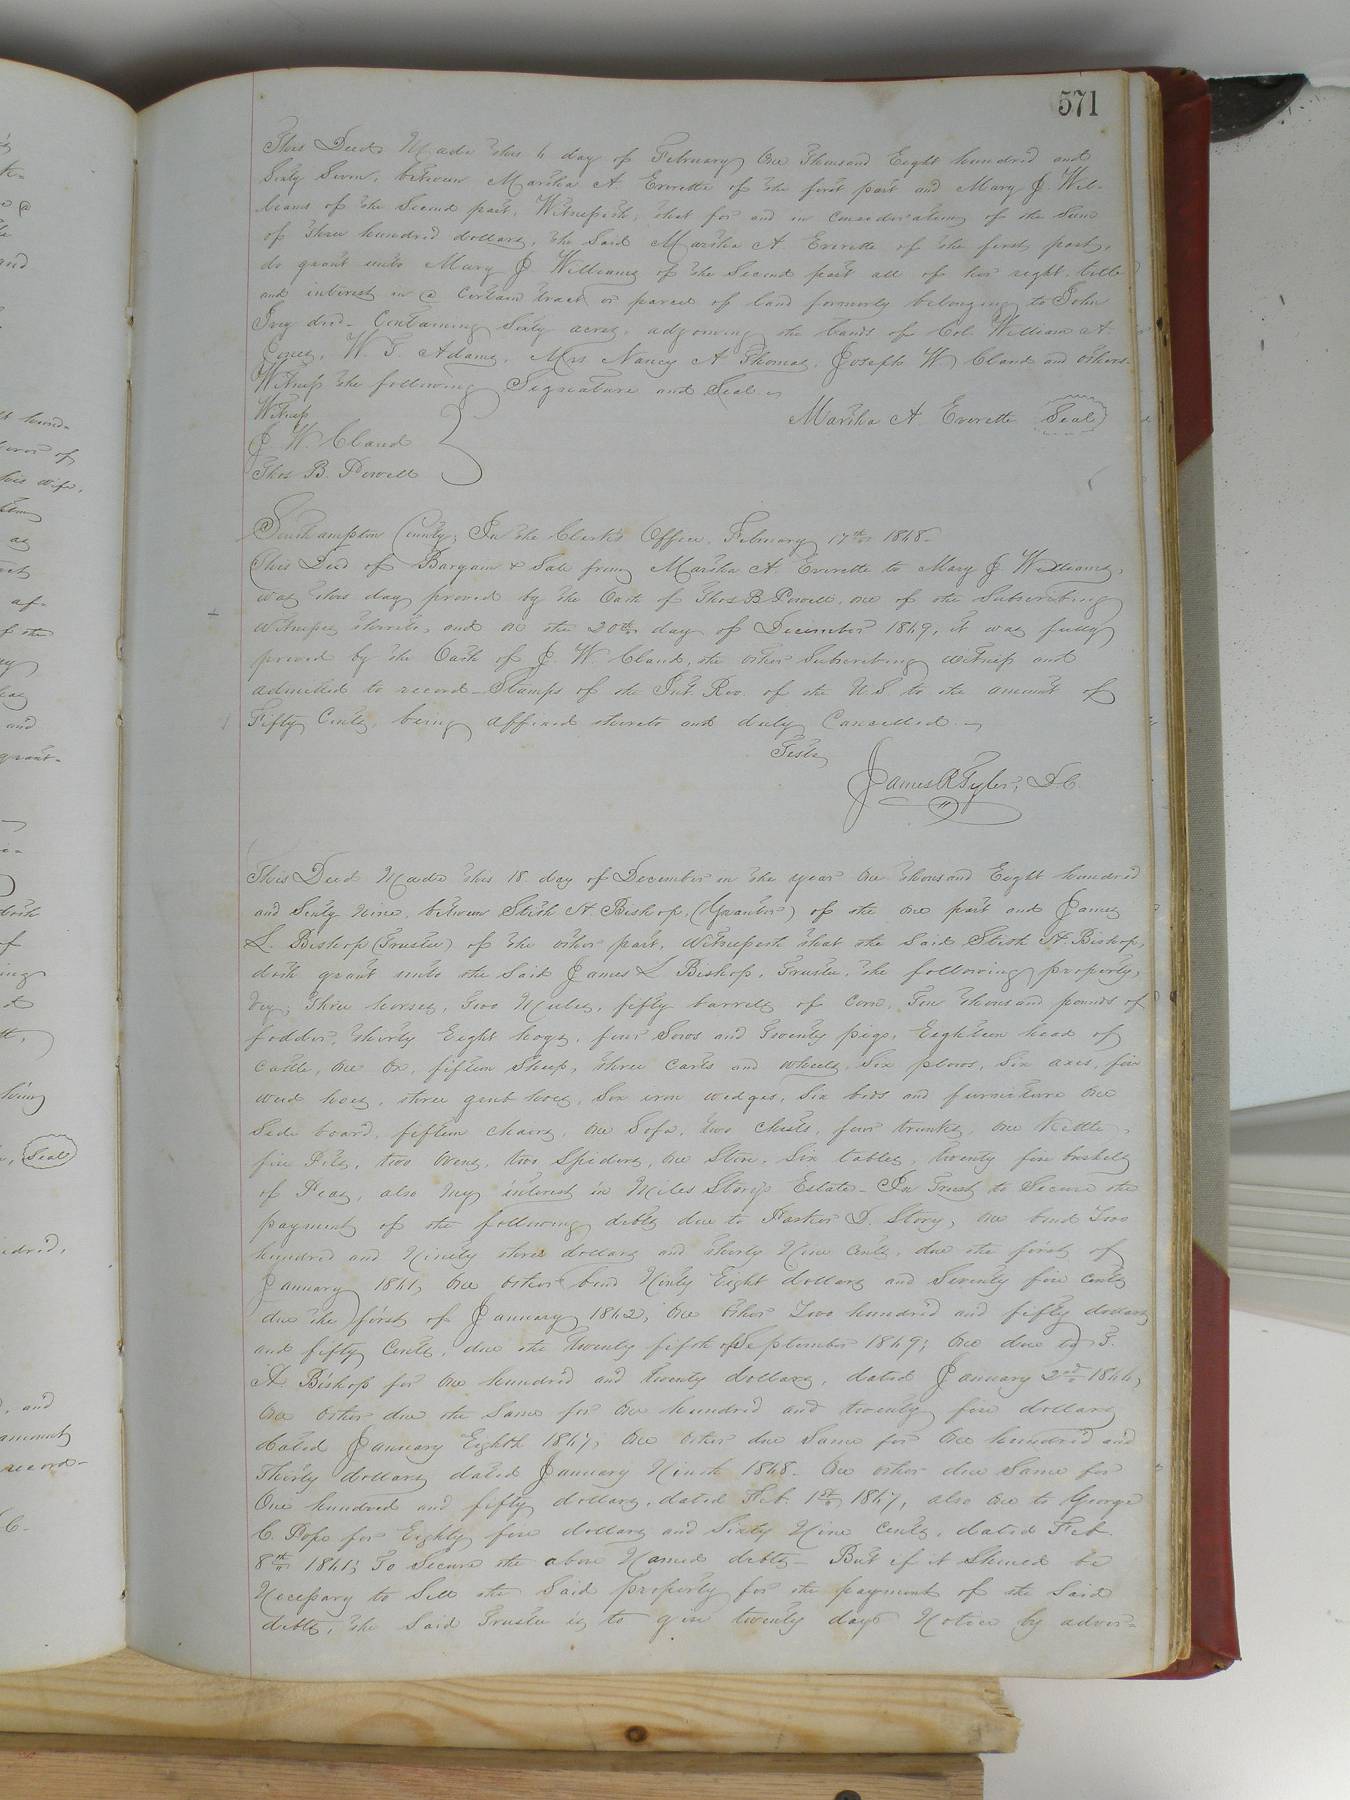 571
This Deed Made this 4 day of February One Thousand Eight hundred and
Sixty Seven, between Martha A. Everette of the first part and Mary J. Wil-
liams of the Second part, Witnesseth, that for and in consideration of the Sum
of three hundred dollars, the Said Martha A. Everette of the first part,
do grant unto Mary J. Williams of the Second part all of her right, title
and interest in a certain tract or parcel of land formerly belonging to John
Ivy decd. Containing Sixty acres, adjoining the lands of Col. William A.
W. T. Adams, Mrs Nancy A Thomas, Joseph W Claud and others.
Witness the following Signature and Seal.
Witness
Martha A Everette Seal
J. W. Claud
Thos B. Powell
Southampton County; In the Clerk's Office, February 17th 1868.
This Deed of Bargain & Sale from Martha A. Everette to Mary J Williams,
was this day proved by the Oath of Thos B Powell, one of the Subscribing
witnesses thereto, and on the 20th day of December 1869, it was fully
proved by the Oath of J. W. Claud, the other Subscribing witness and
admitted to record - Stamps of the Int. Rev. of the U.S to the amount of
Fifty Cents, being affixed thereto and duly Cancelled.
Teste,
James R Tyler, D.C.
This Deed Made this 18 day of December in the year One thousand Eight hundred
and Sixty Nine, between Stith H. Bishop, (Grantor) of the one part and James
L. Bishop (Trustee) of the other part, Witnesseth that the Said Stith H Bishop,
doth grant unto the Said James L Bishop, Trustee, the following property,
viz; Three horses, Two Mules, fifty barrels of corn, Four thousand pounds of
fodder, thirty Eight hogs, four Sows and Twenty pigs, Eighteen head of
cattle, one Ox, fifteen Sheep, three carts and wheels, Six plows, Six axes, five
weed hoes, three grub hoes, Six iron wedges, Six beds and furniture One
Side board, fifteen chairs, one Sofa, two chests, four trunks, one Kettle,
five Pots, two ovens, two Spiders, one Stove, Six tables, twenty five bushels
of Peas, also my interest in Niles Story's Estate - In Trust to Secure the
payment of the following debts due to Parker D. Story, one bond Two
hundred and Ninety three dollars and thirty Nine Cents, due the first of
January 1861, One other bond Ninty Eight dollars and Seventy five cents
due the first of January 1862, One other Two hundred and fifty dollars
and fifty Cents, due the twenty fifth of September 1869; One due to T.
A. Bishop for One hundred and twenty dollars, dated January 2nd 1866,
One other due the Same for One hundred and twenty five dollars
dated January Eighth 1867; One other due Same for One hundred and
Thirty dollars dated January Ninth 1868. One other due Same for
One hundred and fifty dollars, dated Feb. 1st 1867, also one to George
C. Pope for Eighty five dollars and Sixty Nine cents, dated Feb.
8th 1861; To Secure the above Named debts - But if it Should be
Necessary to Sell the Said property for the payment of the Said
debts, the Said Trustee is to give twenty days Notice by adver-